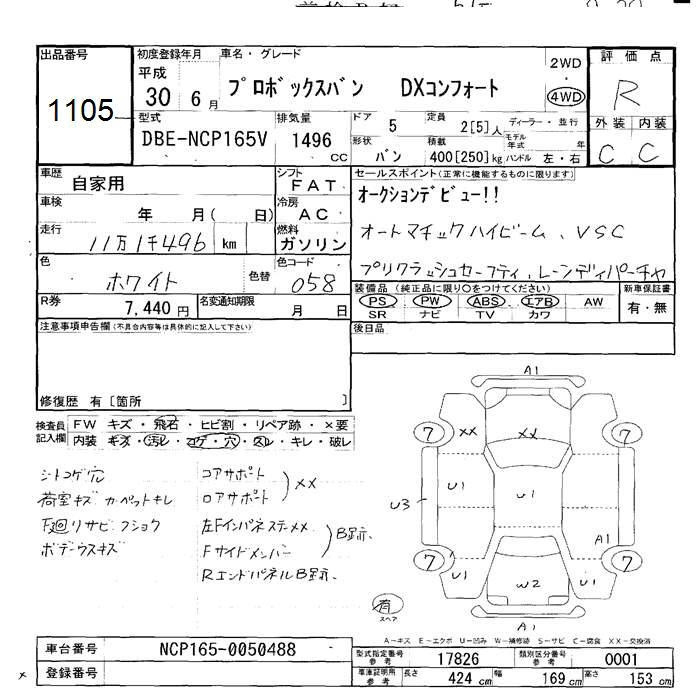 出品番号
1105
初度登録年月
平成
30 6月
車名・グレード
プロボックスバン DXコンフォート
2WD
4WD
評価点
R
外装 内装
C C
型式
DBE-NCP165V
排気量
1496
CC
ドア
5
定員
2[5]人
ディーラー・並行
モデル年式 年
形状
バン
積載
400[250]kg
ハンドル 左・右
車歴
自家用
シフト
FAT
車検
年 月( 日)
冷房
AC
走行
11万1千496 km
燃料
ガソリン
色
ホワイト
色替
色コード
058
R券
7,440円
名変通知期限
月 日
セールスポイント(正常に機能するものに限ります)
オークションデビュー!!
オートマチックハイビーム、VSC
プリクラッシュセーフティ、レーンディパーチャ
装備品(純正品に限り○をつけてください)
PS PW ABS エアB AW
SR ナビ TV カワ
新車保証書
有・無
後日品
注意事項申告欄(不具合内容等は具体的に記入して下さい)
修復歴 有[箇所 ]
検査員記入欄
FW キズ・飛石・ヒビ割・リペア跡・×要
内装 キズ・汚レ・コゲ・穴・スレ・キレ・破レ
シートコゲ穴
荷室キズ カーペットキレ
下廻リサビ フショク
ボデーウスキズ
コアサポート
ロアサポート
××
左Fインパネステー××
Fサイドメンバー
B顕示.
RエンドパネルB顕示.
A1
7
××
××
7
U1
U1
U3
A1
7
U1
W2
U1
7
A1
有
スペア
A−キズ E−エクボ U−凹み W−補修跡 S−サビ C−腐食 ××−交換済
車台番号
NCP165-0050488
登録番号
型式指定番号
参考
17826
類別区分番号
参考
0001
車庫証明用
参考
長さ
424 cm
幅
169 cm
高さ
153 cm